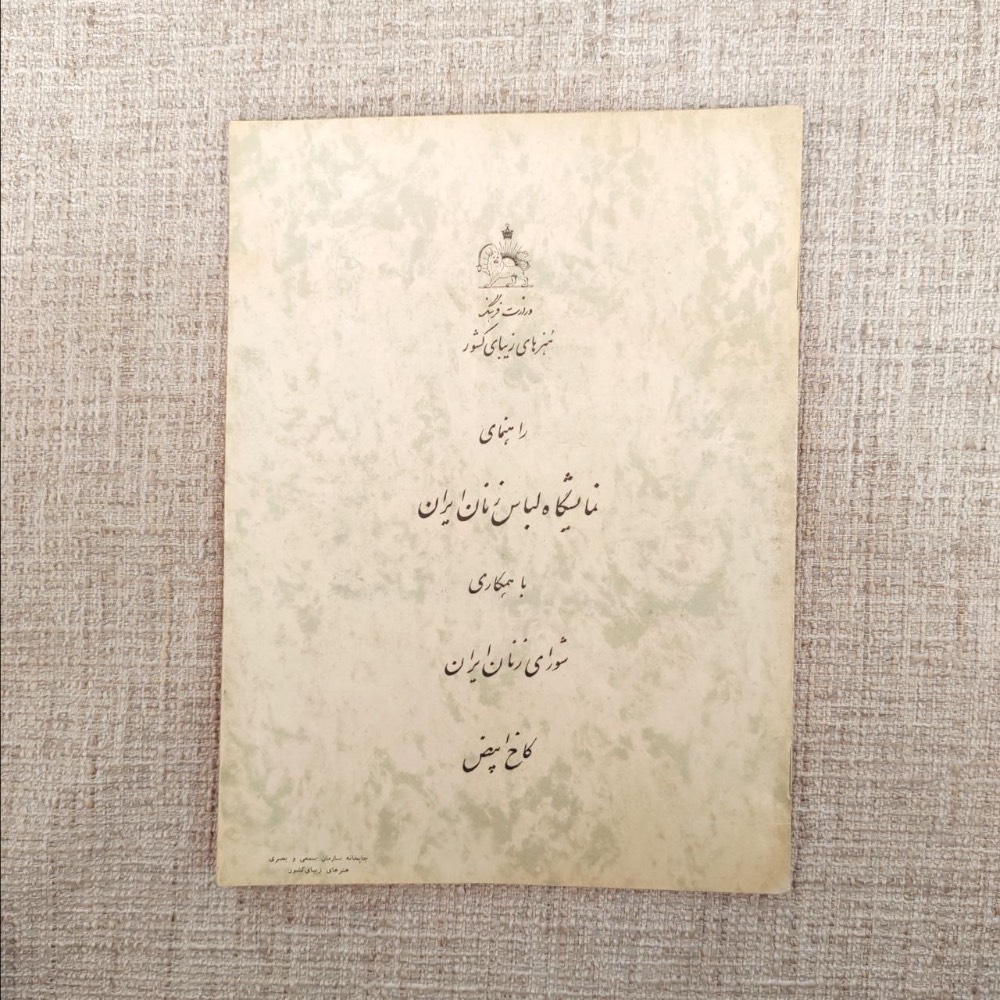 وزارت فرهنگ
هنرهای زیبای کشور
راهنمای
نمایشگاه لباس زنان ایران
با همکاری
شورای زنان ایران
کاخ ابیض
چاپخانه سازمان سمعی و بصری
هنرهای زیبای کشور